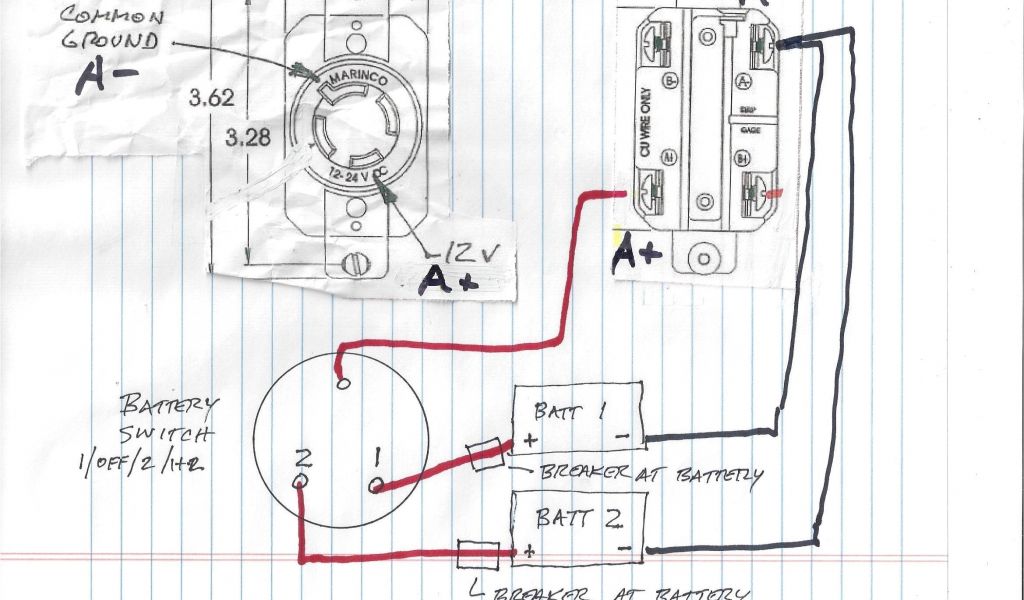 COMMON
GROUND
A-
3.62
3.28
MARINCO
12-24 V DC
12 V
A+
B-
A-
CU WIRE ONLY
STRIP
GAGE
A+
B+
A+
BATTERY
SWITCH
1/OFF/2/1+2
2
1
BATT 1
+
-
BREAKER AT BATTERY
BATT 2
+
-
BREAKER AT BATTERY